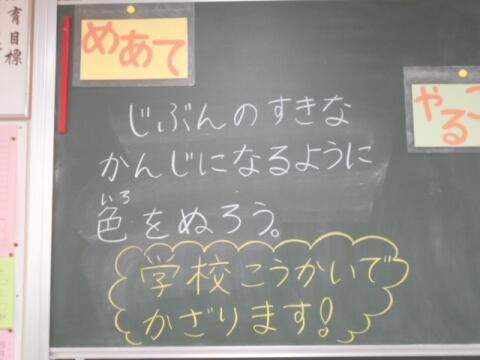 育目標
めあて
やるこ
じぶんのすきな
かんじになるように
いろ
色をぬろう。
学校こうかいで
かざります!